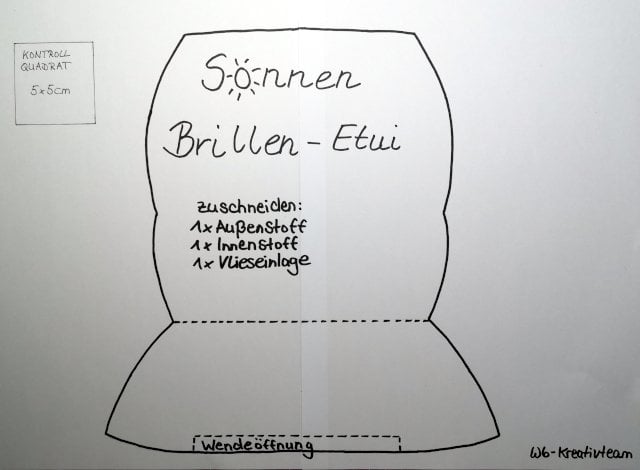 KONTROLL
QUADRAT
5x5cm
Sonnen
Brillen - Etui
zuschneiden:
1x Außenstoff
1x Innenstoff
1x Vlieseinlage
Wendeöffnung
W6-Kreativteam